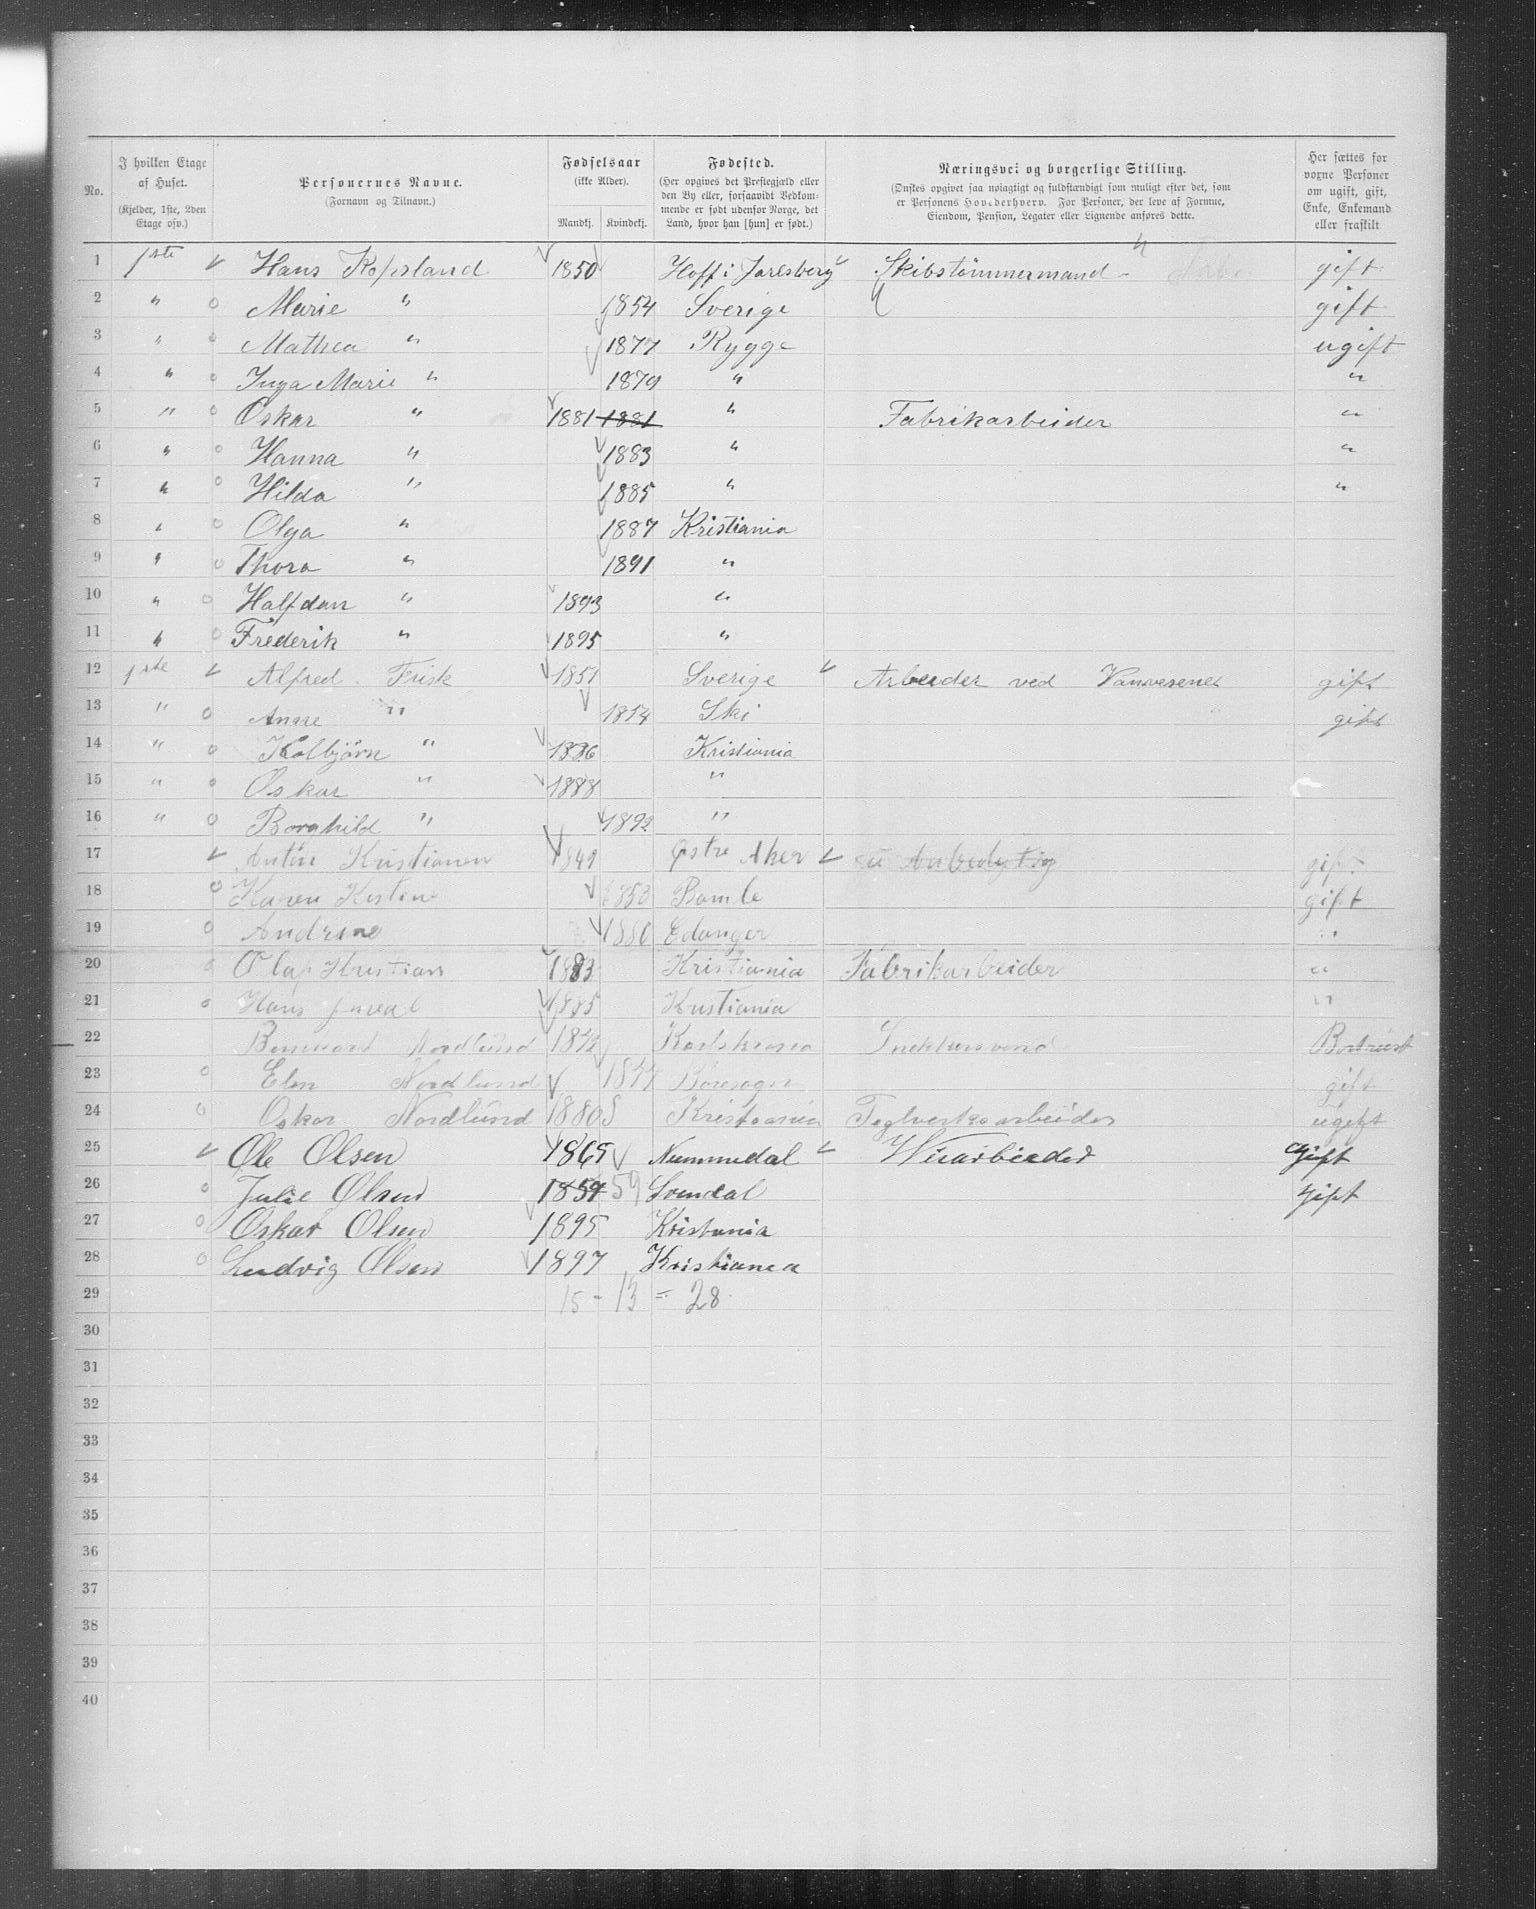 No. | I hvilken Etage af Huset. (Kjelder, 1ste, 2den Etage osv.) | Personernes Navne. (Fornavn og Tilnavn.) | Fødselsaar (ikke Alder). Mandkj. Kvindekj. | Fødested. (Her opgives det Prestegjæld eller den By eller, forsaavidt Vedkommende er født udenfor Norge, det Land, hvor han [hun] er født.) | Næringsvei og borgerlige Stilling. (Ønskes opgivet saa nøiagtigt og fuldstændigt som muligt efter det, som er Personens Hovederhverv. For Personer, der leve af Formue, Eiendom, Pension, Legater eller Lignende anføres dette. | Her sættes for vorne Personer om ugift, gift, Enke, Enkemand eller fraskilt
1 1ste Hans Kopsland 1850 Hoff i Jarlsberg Skibstømmermand gift
2 " Marie " 1854 Sverige gift
3 " Mathea " 1877 Rygge ugift
4 " Inga Marie " 1879 " "
5 " Oskar " 1881 1881 " Fabrikarbeider "
6 " Hanna " 1883 " "
7 " Hilda " 1885 " "
8 " Olga " 1887 Kristiania
9 " Thora " 1891 "
10 " Halfdan " 1893 "
11 " Frederik " 1895 "
12 1ste Alfred Frisk 1851 Sverige Arbeider ved gift
13 " Anne " 1854 Ski gift
14 " Kolbjörn " 1886 Kristiania
15 " Oskar " 1888 "
16 " Borghild " 1892 "
17 Kristiansen 1849 Østre Aker gift
18 Karen 1853 Bamle gift
19 Andrine 1880 "
20 Olaf Kristian 1883 Kristiania Fabrikarbeider "
21 Hans 1885 Kristiania "
22 Nordlund
23 Elen Nordlund gift
24 Oskar Nordlund 1880 Kristiania Teglverksarbeider ugift
25 Ole Olsen 1865 Nummedal gift
26 Julie Olsen 1859 59 gift
27 Oskar Olsen 1895 Kristania
28 Ludvig Olsen 1897 Kristiania
29 15 - 13 = 28
30
31
32
33
34
35
36
37
38
39
40